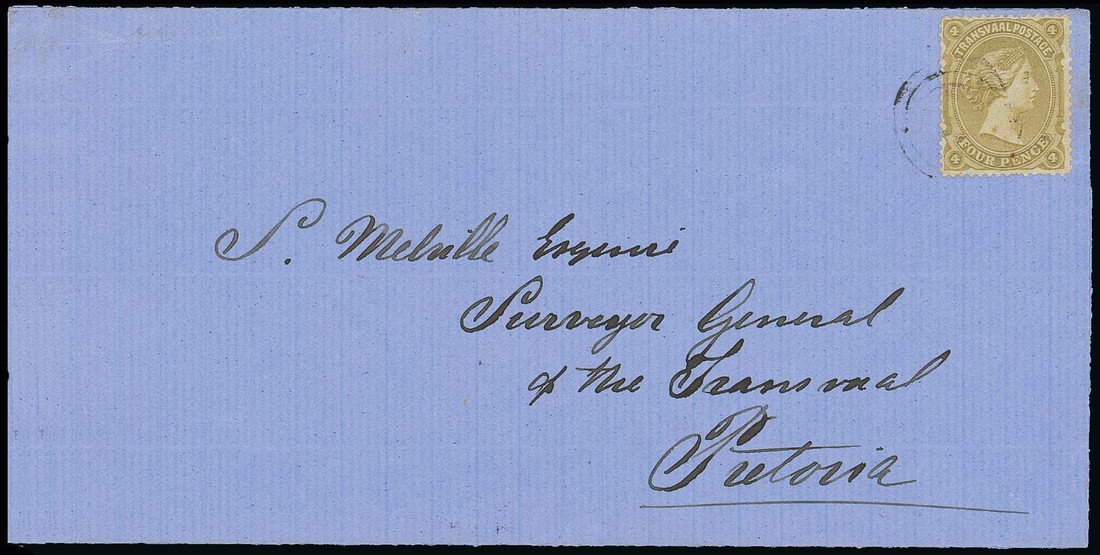 4 TRANSVAAL POSTAGE 4
4 FOUR PENCE 4
S. Melville Esquire
Surveyor General
of the Transvaal
Pretoria